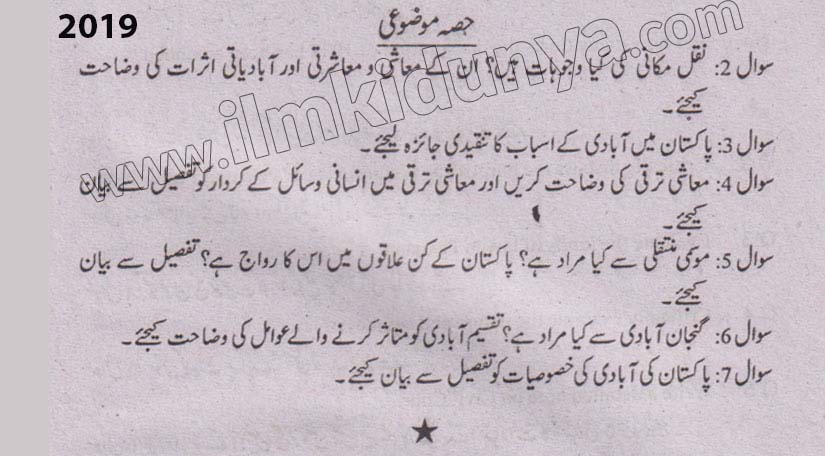 2019
حصہ موضوعی
سوال 2: نقل مکانی کی کیا وجوہات ہیں؟ ان کے معاشی و معاشرتی اور آبادیاتی اثرات کی وضاحت
کیجئے۔
سوال 3: پاکستان میں آبادی کے اسباب کا تنقیدی جائزہ لیجئے۔
سوال 4: معاشی ترقی کی وضاحت کریں اور معاشی ترقی میں انسانی وسائل کے کردار کو تفصیل سے بیان
کیجئے۔
سوال 5: موسمی منتقلی سے کیا مراد ہے؟ پاکستان کے کن علاقوں میں اس کا رواج ہے؟ تفصیل سے بیان
کیجئے۔
سوال 6: گنجان آبادی سے کیا مراد ہے؟ تقسیم آبادی کو متاثر کرنے والے عوامل کی وضاحت کیجئے۔
سوال 7: پاکستان کی آبادی کی خصوصیات کو تفصیل سے بیان کیجئے۔
www.ilmkidunya.com